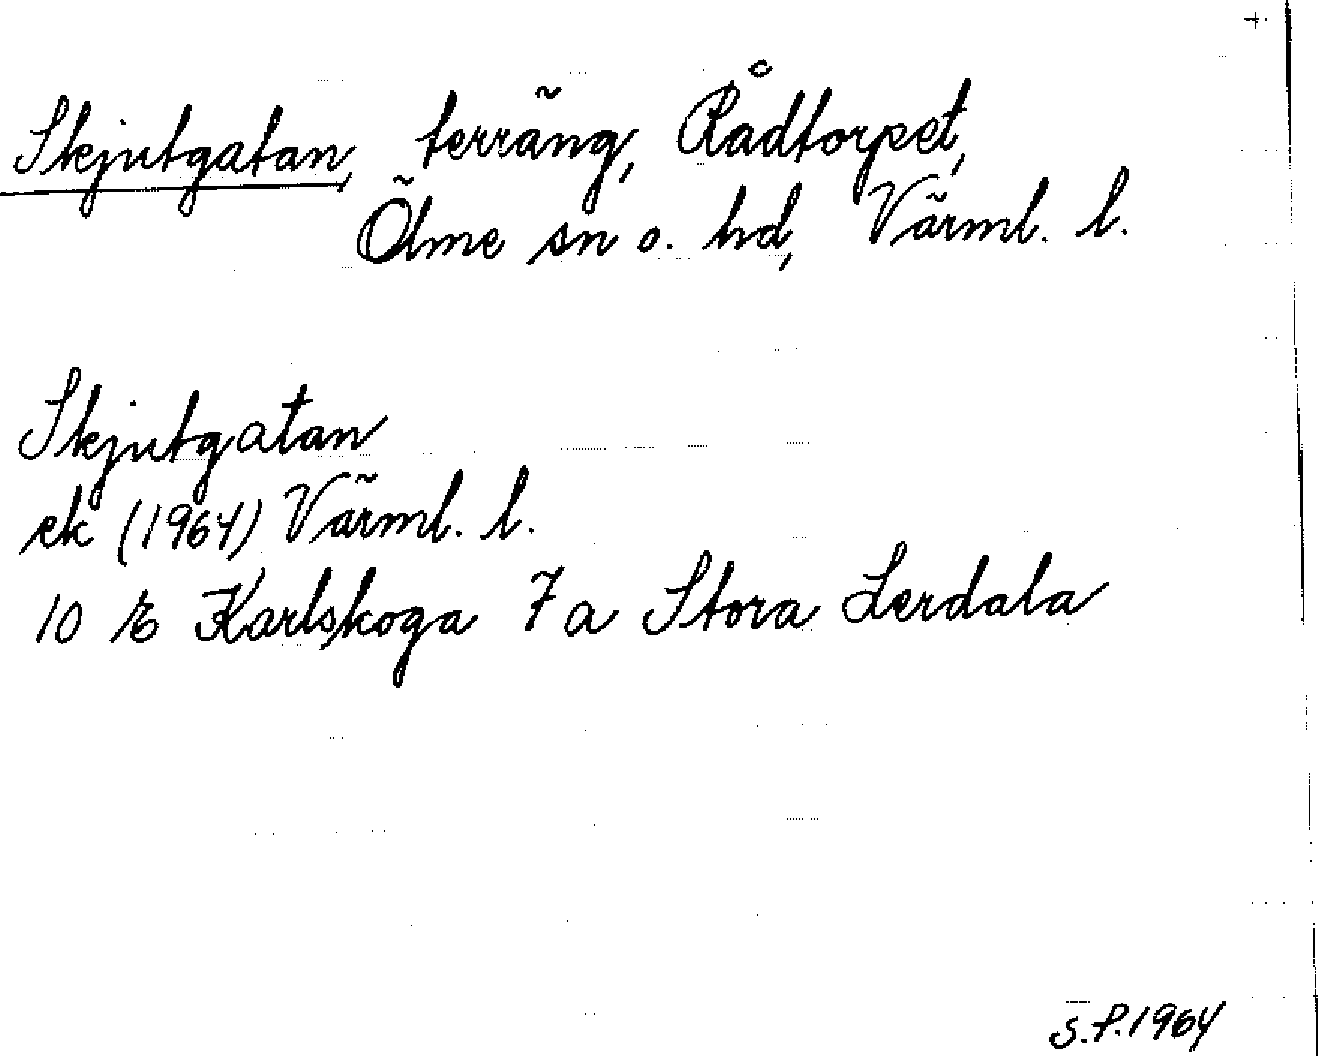 Skjutgatan, terräng, Rådtorpet,
Ölme sn o. hd, Värml. l.
Skjutgatan
ek (1964) Värml. l.
10 E Karlskoga 7a Stora Lerdala
S.P. 1964